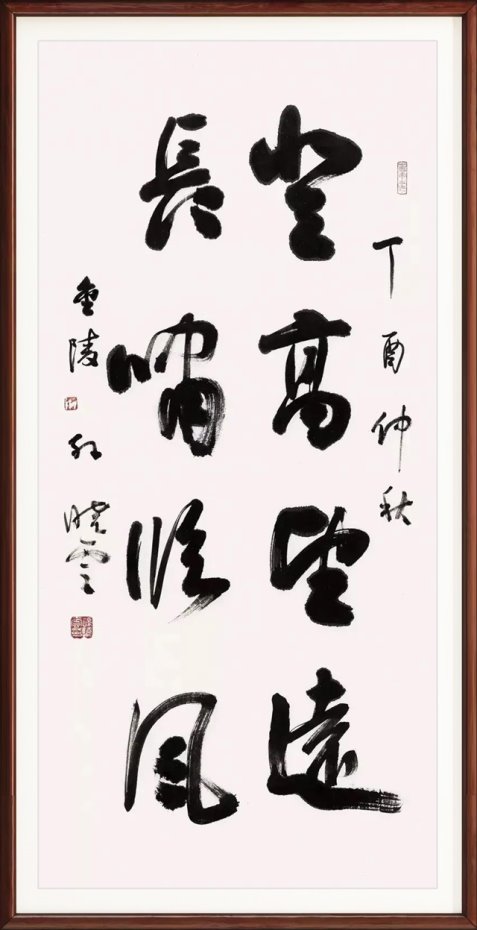 丁酉仲秋
登高望遠
長嘯臨風
金陵孫曉雲